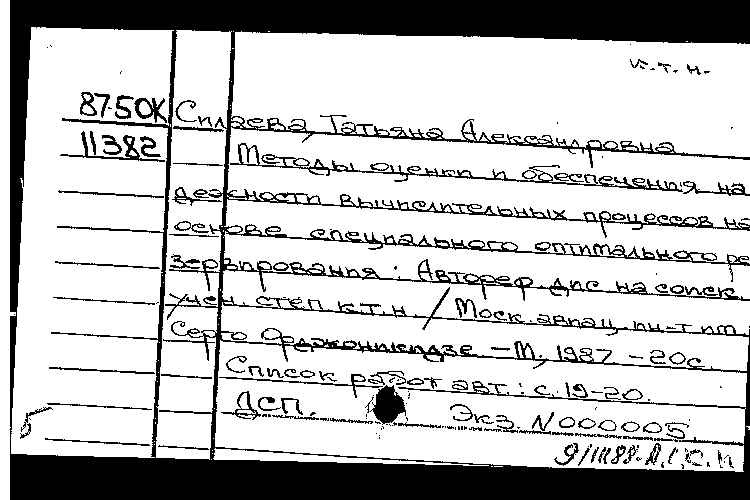 к.т.н.
87-50К Сплаева, Татьяна Александровна
11382 Методы оценки и обеспечения на
дежности вычислительных процессов на
основе специального оптимального ре
зервирования: Автореф. дис. на соиск.
учен. степ. к.т.н. / Моск. авиац. ин-т им.
Серго Орджоникидзе. – М., 1987 – 20с.
Список работ авт.: с. 19-20.
ДСП. Экз. N000005.
Б